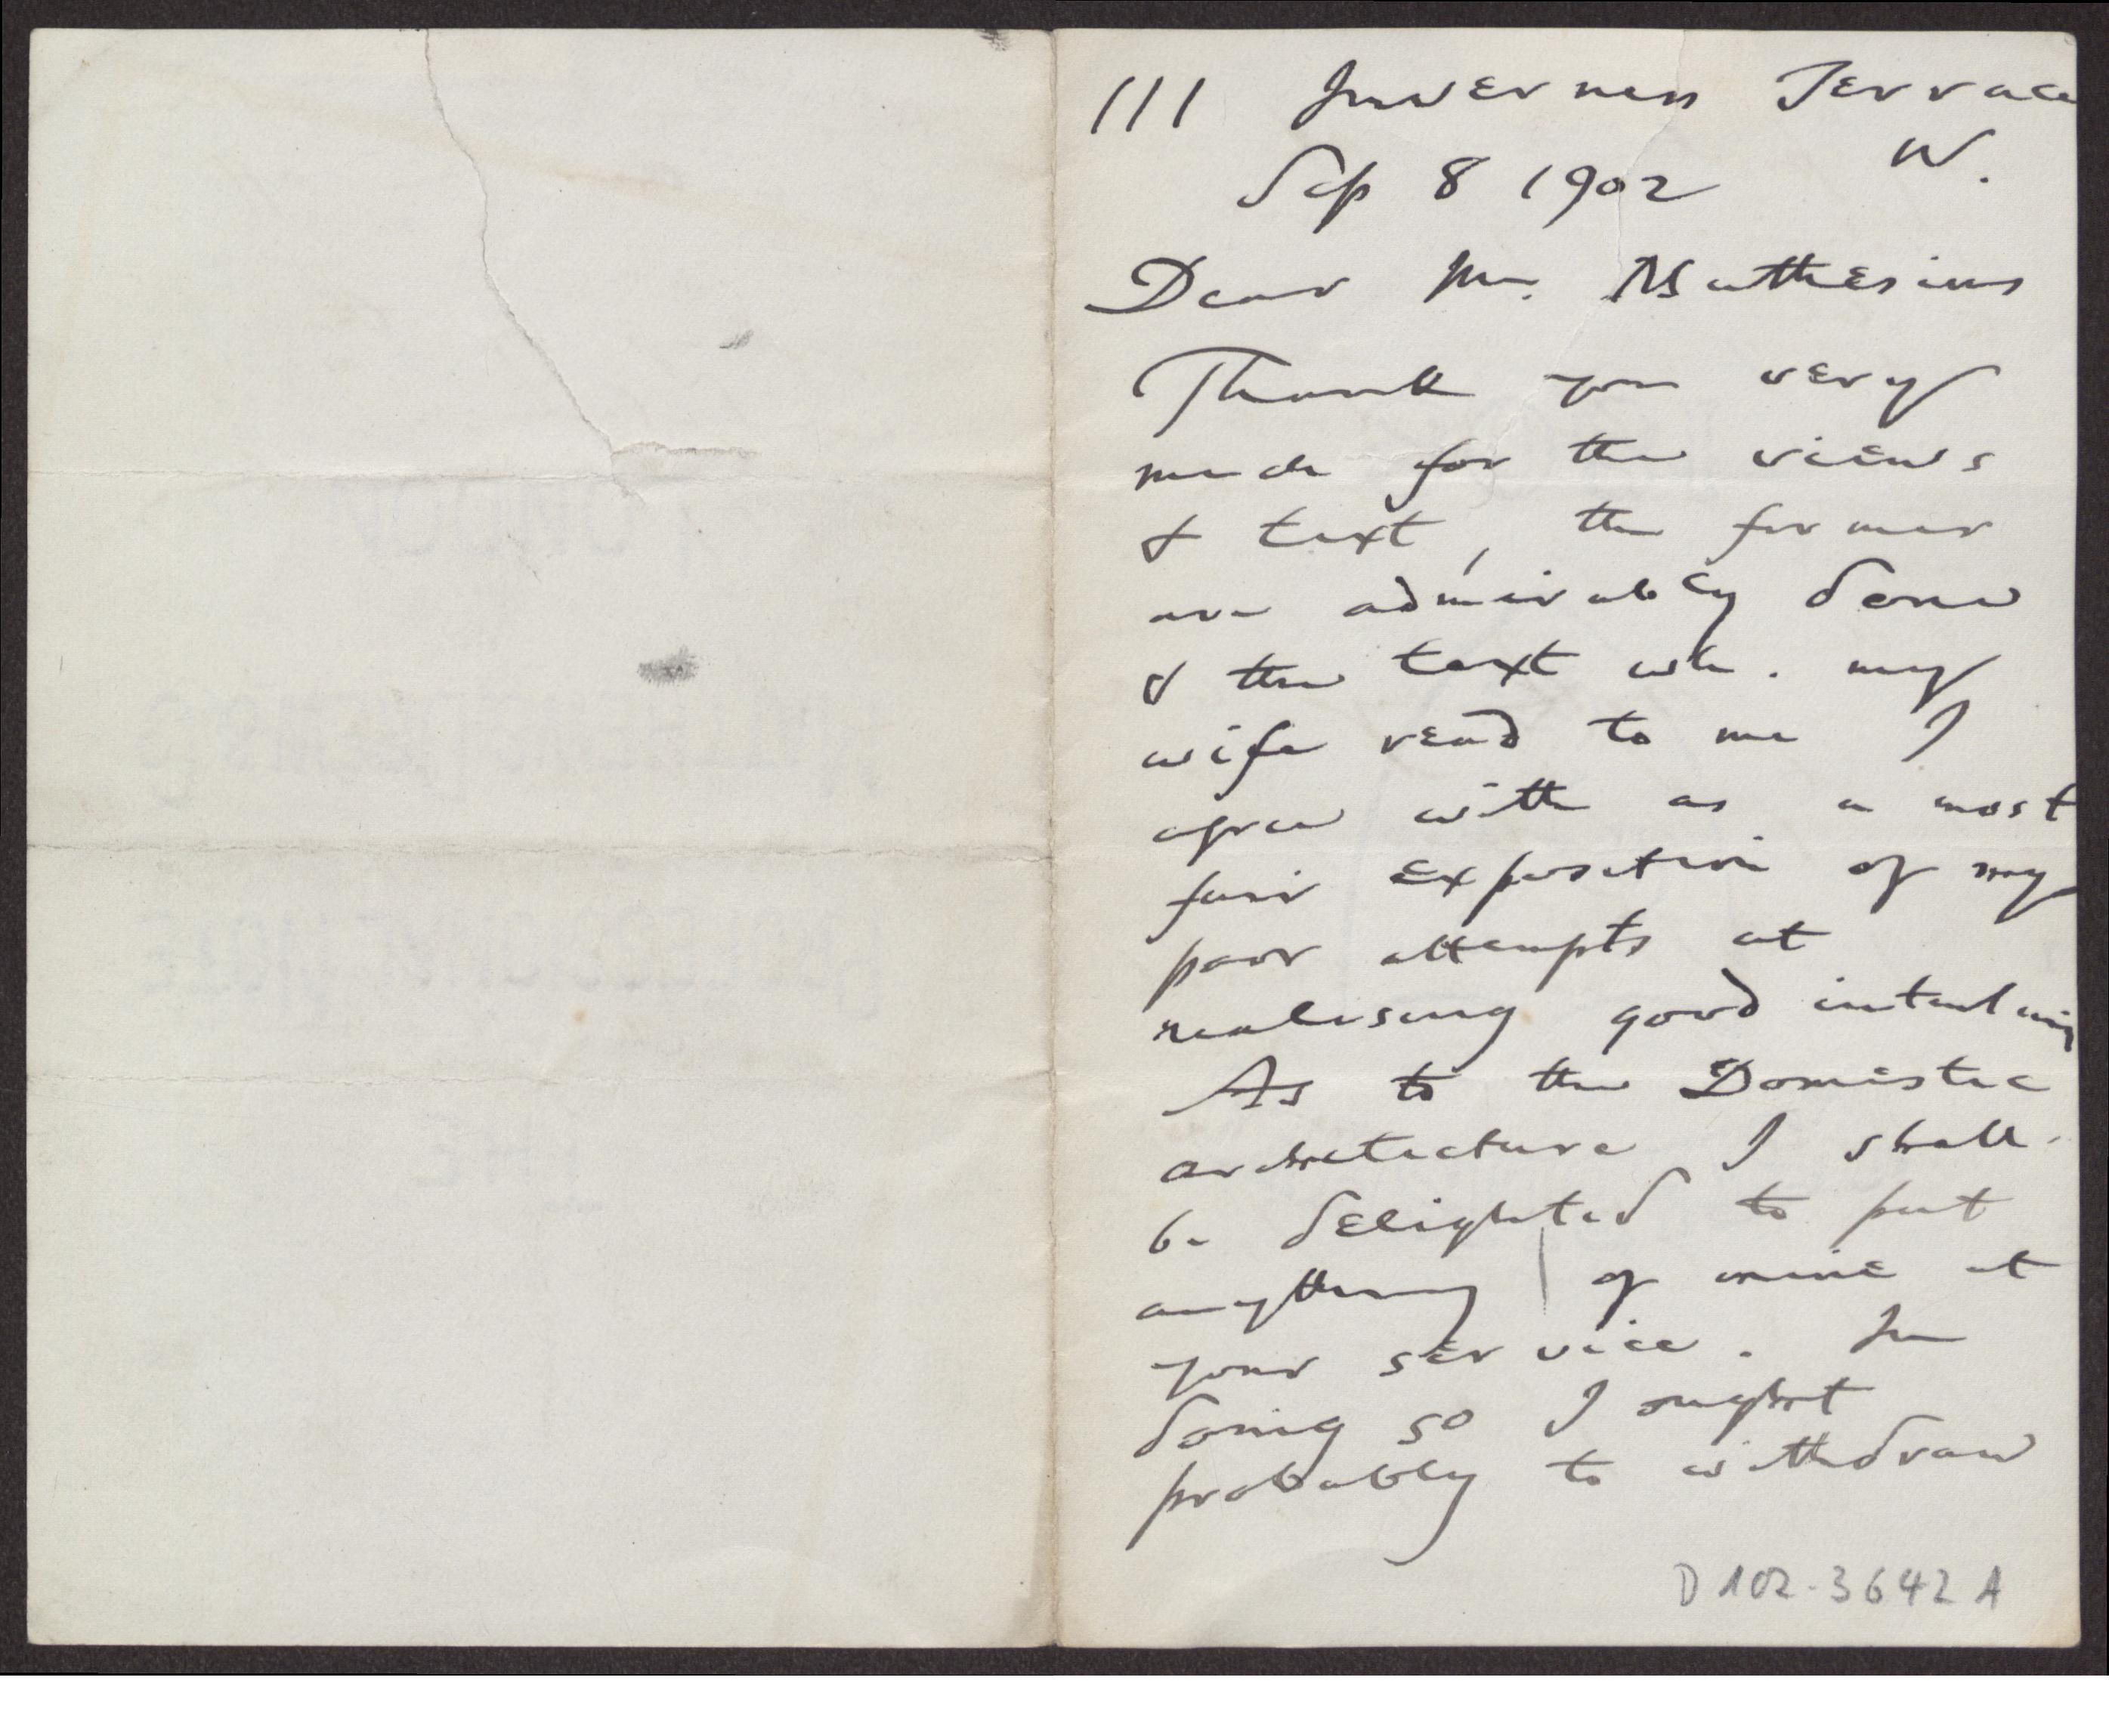 111 Inverness Terrace
W.
Sep 8 1902
Dear Mr. Muthesius
Thank you very
much for the views
& text, the former
are admirably done
& the text wh. my
wife read to me I
agree with as a most
fair exposition of my
poor attempts at
realising good
As to the Domestic
architecture I shall
be delighted to put
anything of mine at
your service. In
doing so I ought
probably to withdraw
D 102-3642 A